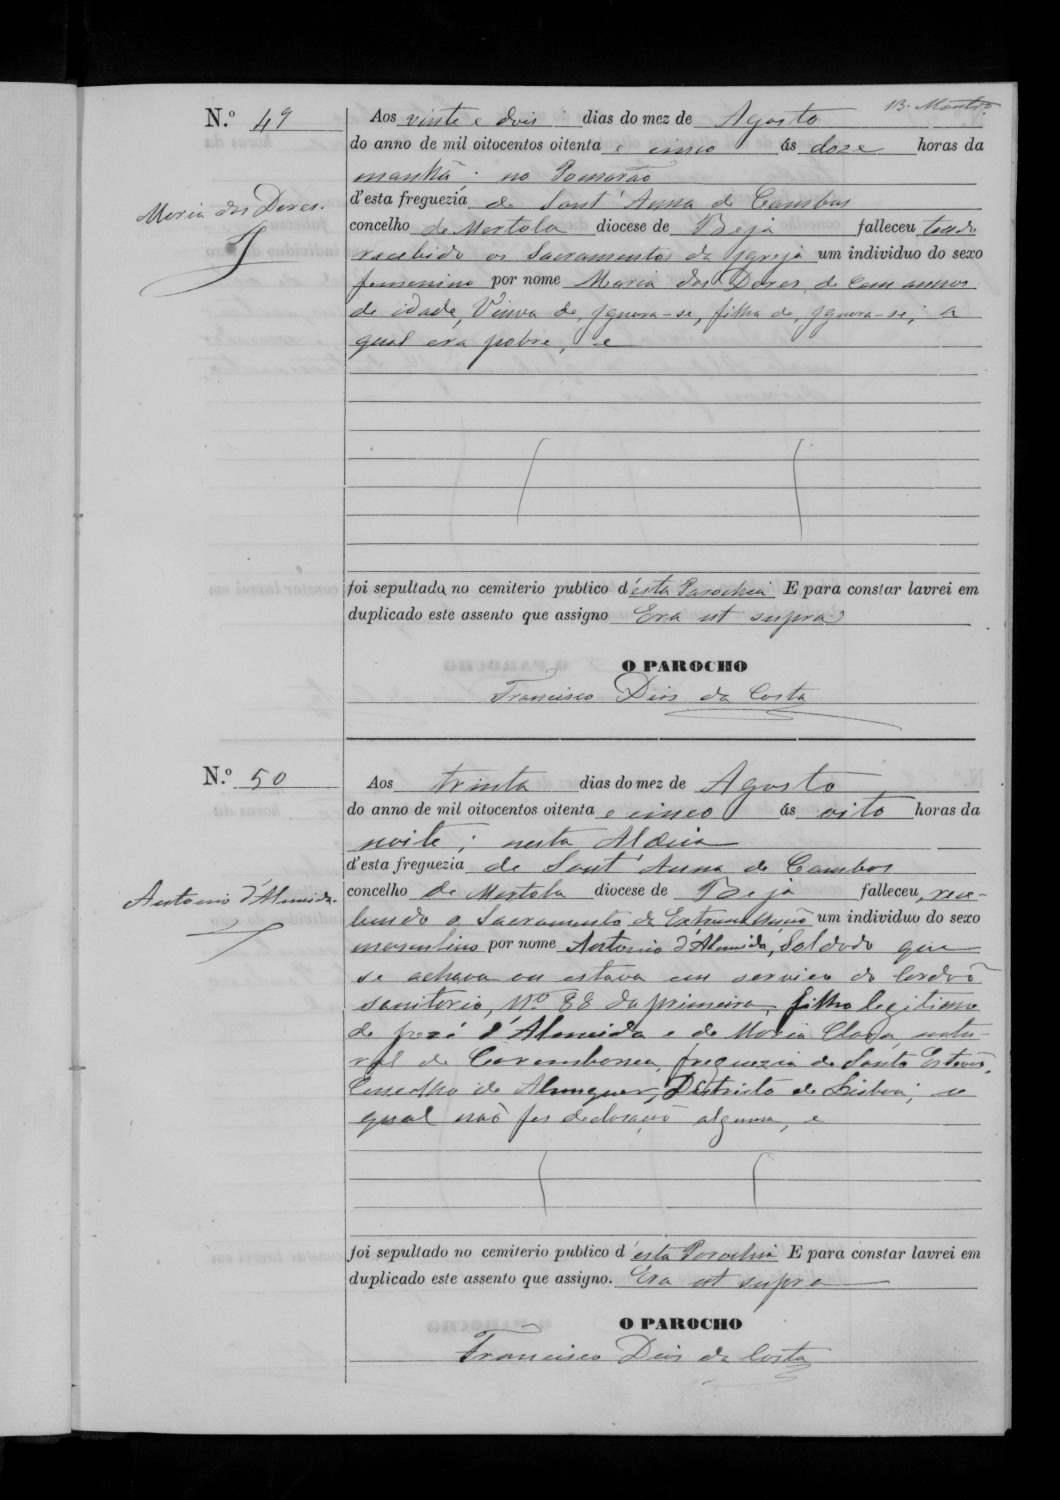 N.º 49
Maria das Dores.
Aos vinte e dois dias do mez de Agosto
do anno de mil oitocentos oitenta e cinco ás doze horas da
manhã no Pomarão
d'esta freguezia de Sant'Anna de Cambas
concelho de Mertola diocese de Beja falleceu, tendo
recebido os Sacramentos da Igreja um individuo do sexo
femenino por nome Maria das Dores, de Cem annos
de idade, Viuva de, Ignora-se, filha de, Ignora-se; a
qual era pobre, e
foi sepultada no cemiterio publico d'esta Parochia E para constar lavrei em
duplicado este assento que assigno Era ut supra
O PAROCHO
Francisco Dias da Costa
N.º 50
Antonio d'Almeida.
Aos trinta dias do mez de Agosto
do anno de mil oitocentos oitenta e cinco ás oito horas da
noite; nesta Aldeia
d'esta freguezia de Sant'Anna de Cambas
concelho de Mertola diocese de Beja falleceu, rece-
bendo o Sacramento da Extrema Unção um individuo do sexo
masculino por nome Antonio d'Almeida, Soldado que
se achava ou estava em serviço do Cordão
sanitario, Nº 88 da primeira, filho legitimo
de José d'Almeida e de Maria Clara, natu-
ral de freguezia de Santo Estevão,
Concelho de Alemquer, Districto de Lisboa; o
qual não fes declaração alguma, e
foi sepultado no cemiterio publico d'esta Parochia E para constar lavrei em
duplicado este assento que assigno. Era ut supra
O PAROCHO
Francisco Dias da Costa